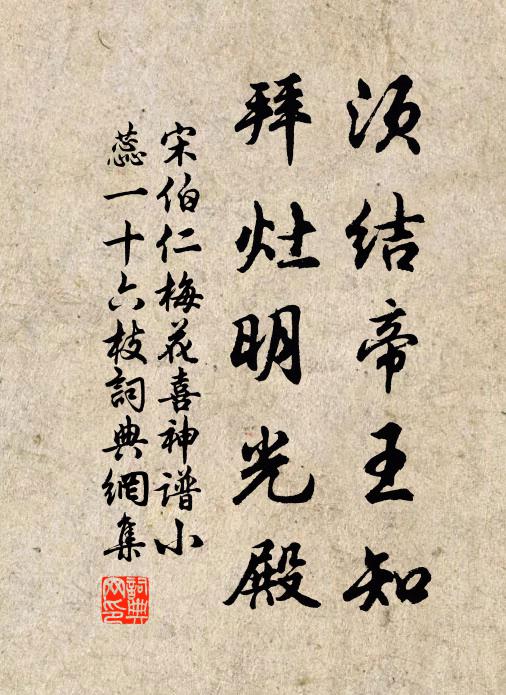 须结帝王知
拜灶明光殿
宋伯仁梅花喜神谱小
蕊一十六枝詞典網集
詞典網印